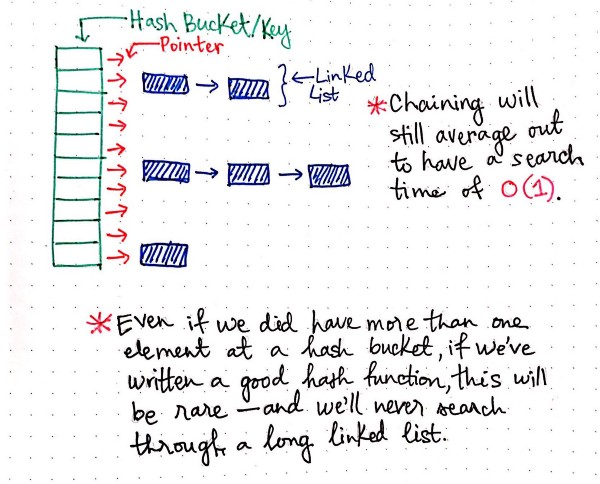 Hash Bucket/Key
Pointer
Linked
List
*Chaining will
still average out
to have a search
time of O(1).
*Even if we did have more than one
element at a hash bucket, if we've
written a good hash function, this will
be rare — and we'll never search
through a long linked list.